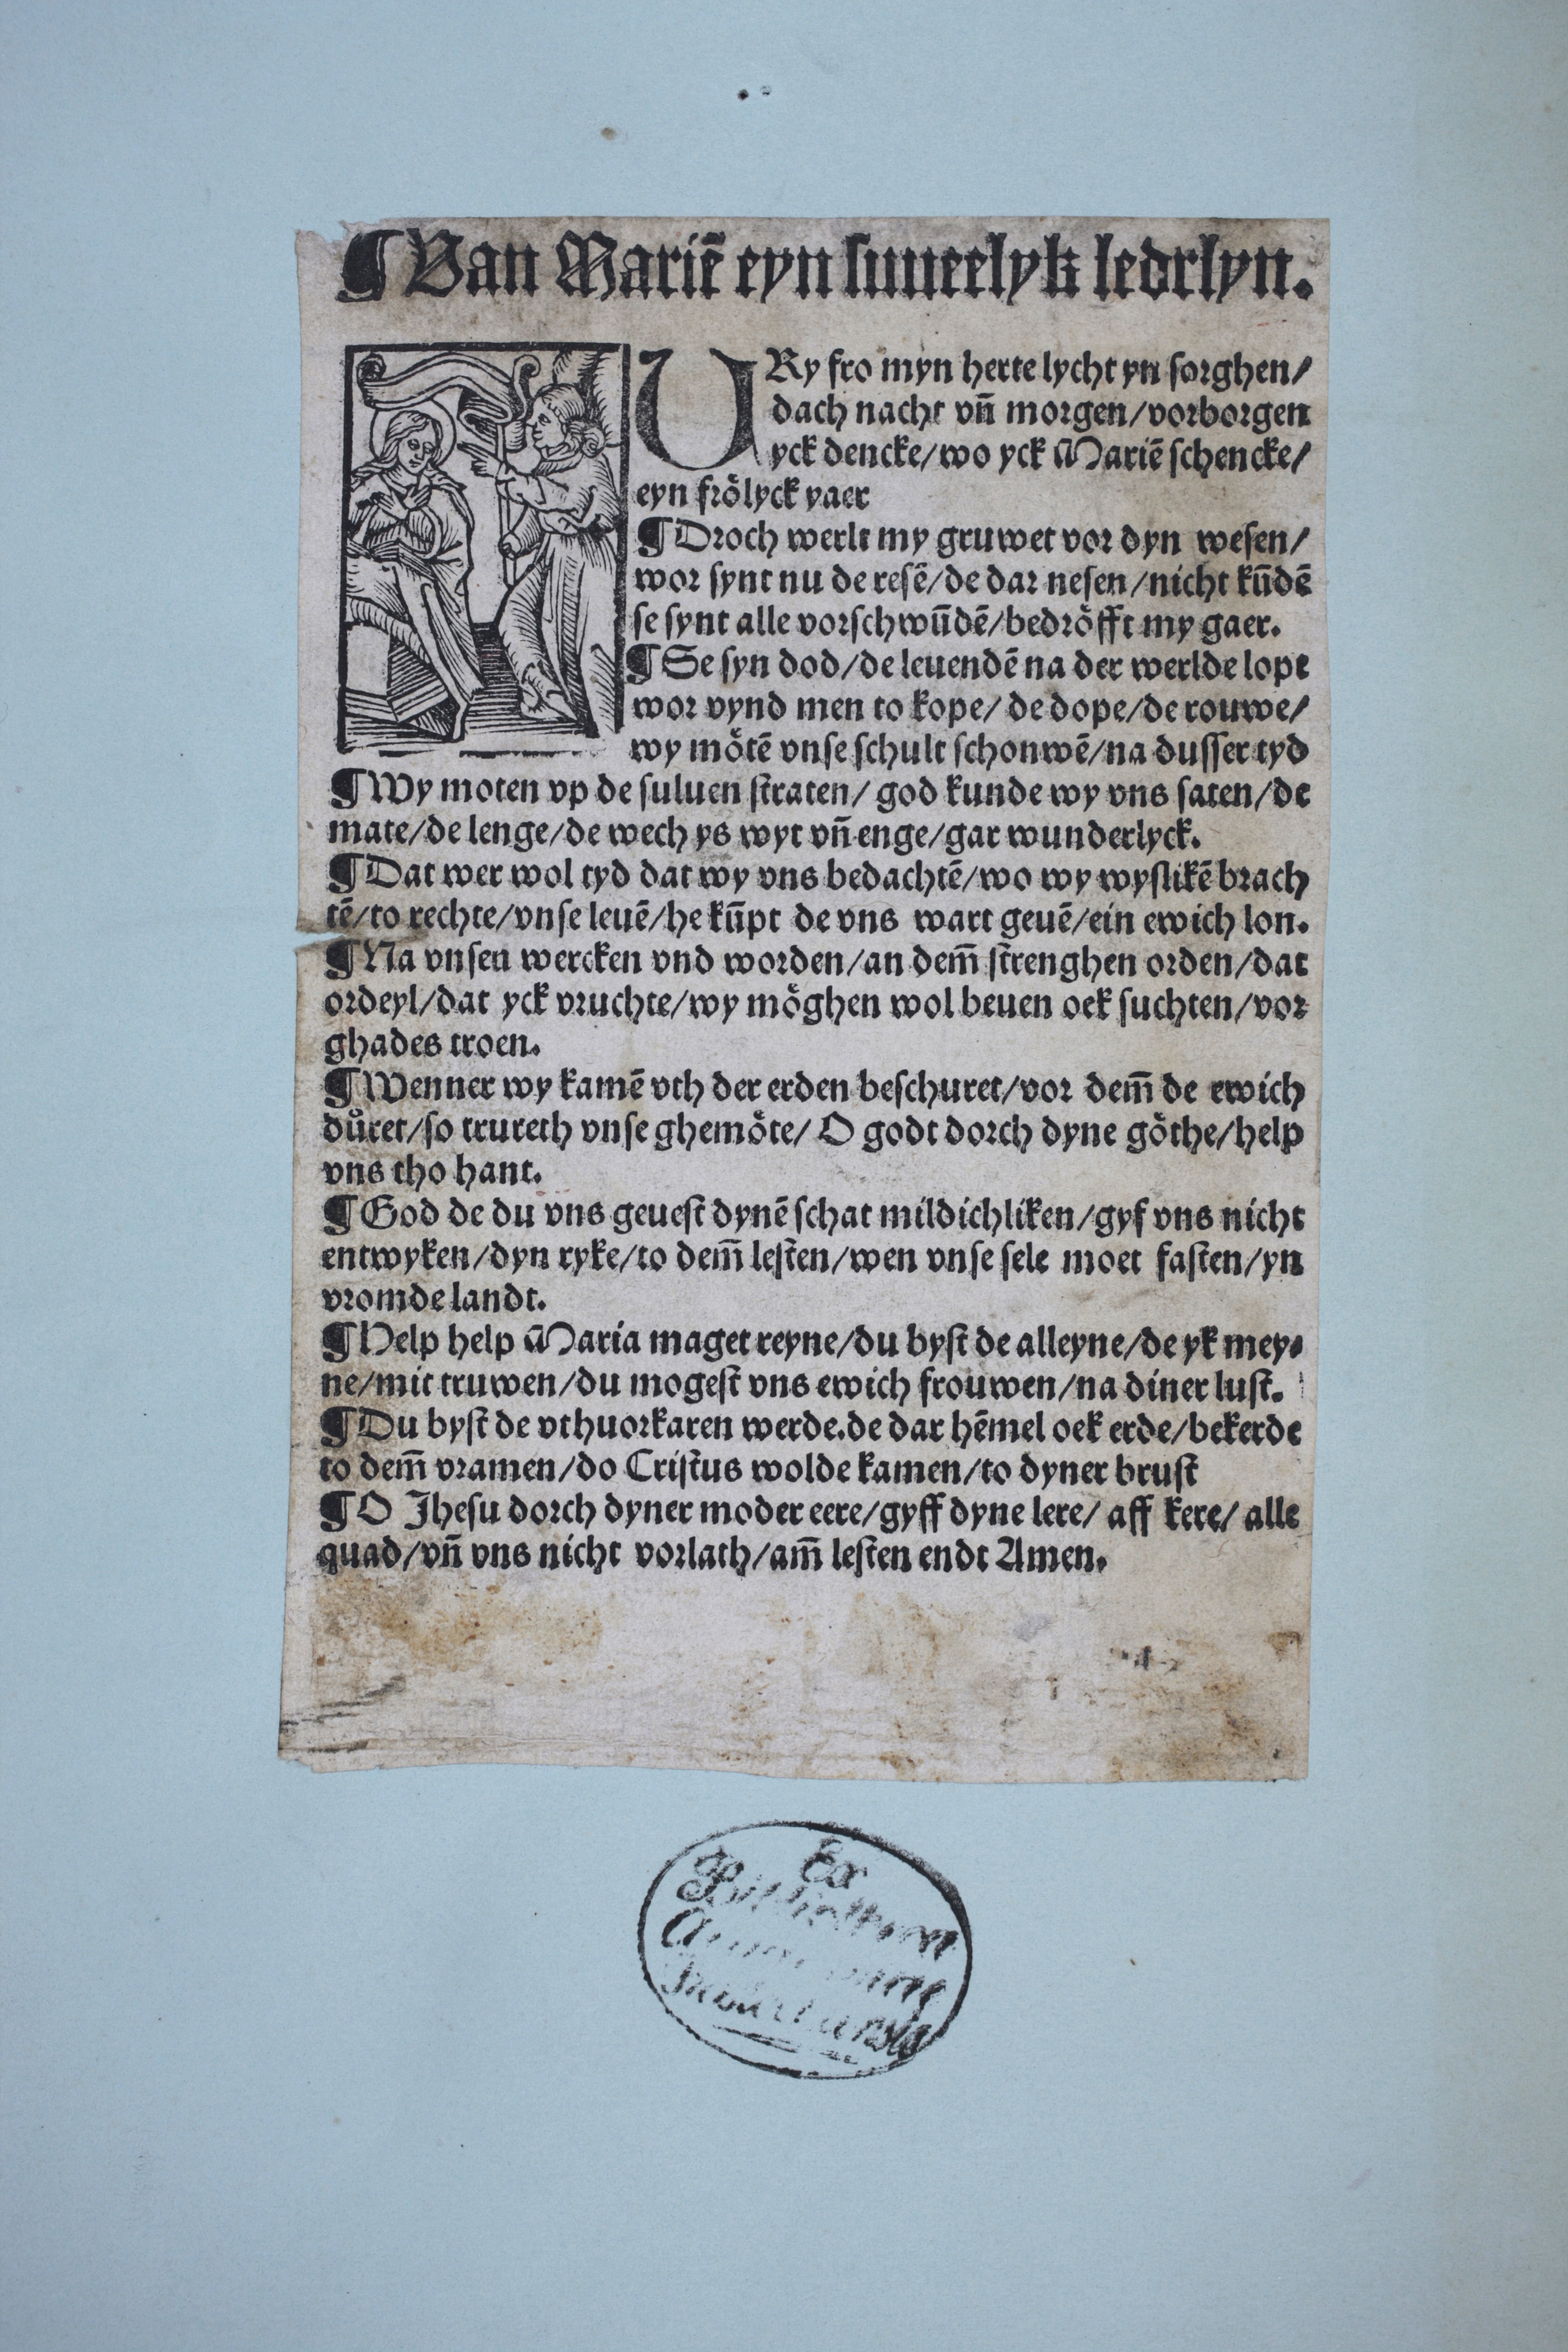 ¶ Van Mariē eyn suuerlyk ledrlyn.
URy fro myn herte lycht yn sorghen/
dach nacht vn̄ morgen/vorborgen
yck dencke/wo yck Mariē schencke/
eyn frölyck yaer
¶ Droch werlt my gruwet vor dyn wesen/
wor synt nu de resē/de dar nesen/nicht kūdē
se synt alle vorschwūdē/bedröfft my gaer.
¶ Se syn dod/de leuendē na der werlde lopt
wor vynd men to kope/de dope/de rouwe/
wy mötē vnse schult schonwē/na dusser tyd
¶ Wy moten vp de suluen straten/ god kunde wy vns saten/de
mate/de lenge/de wech ys wyt vn̄ enge/gar wunderlyck.
¶ Dat wer wol tyd dat wy vns bedachtē/wo wy wyslikē brach
tē/to rechte/vnse leuē/he kūpt de vns wart geuē/ein ewich lon.
¶ Na vnsen wercken vnd worden/an dem̄ strenghen orden/dat
ordeyl/dat yck vruchte/wy möghen wol beuen oek suchten/vor
ghades troen.
¶ Wenner wy kamē vth der erden beschuret/vor dem̄ de ewich
důret/so trureth vnse ghemöte/ O godt dorch dyne göthe/help
vns tho hant.
¶ God de du vns geuest dynē schat mildichliken/gyf vns nicht
entwyken/dyn ryke/to dem̄ lesten/wen vnse sele moet fasten/yn
vromde landt.
¶ Help help Maria maget reyne/du byst de alleyne/de yk mey⸗
ne/mit truwen/du mogest vns ewich frouwen/na diner lust.
¶ Du byst de vthuorkaren werde.de dar hēmel oek erde/bekerde
to dem̄ vramen/do Cristus wolde kamen/to dyner brust
¶ O Jhesu dorch dyner moder eere/gyff dyne lere/ aff kere/ alle
quad/vn̄ vns nicht vorlath/am̄ lesten endt Amen.
Ex